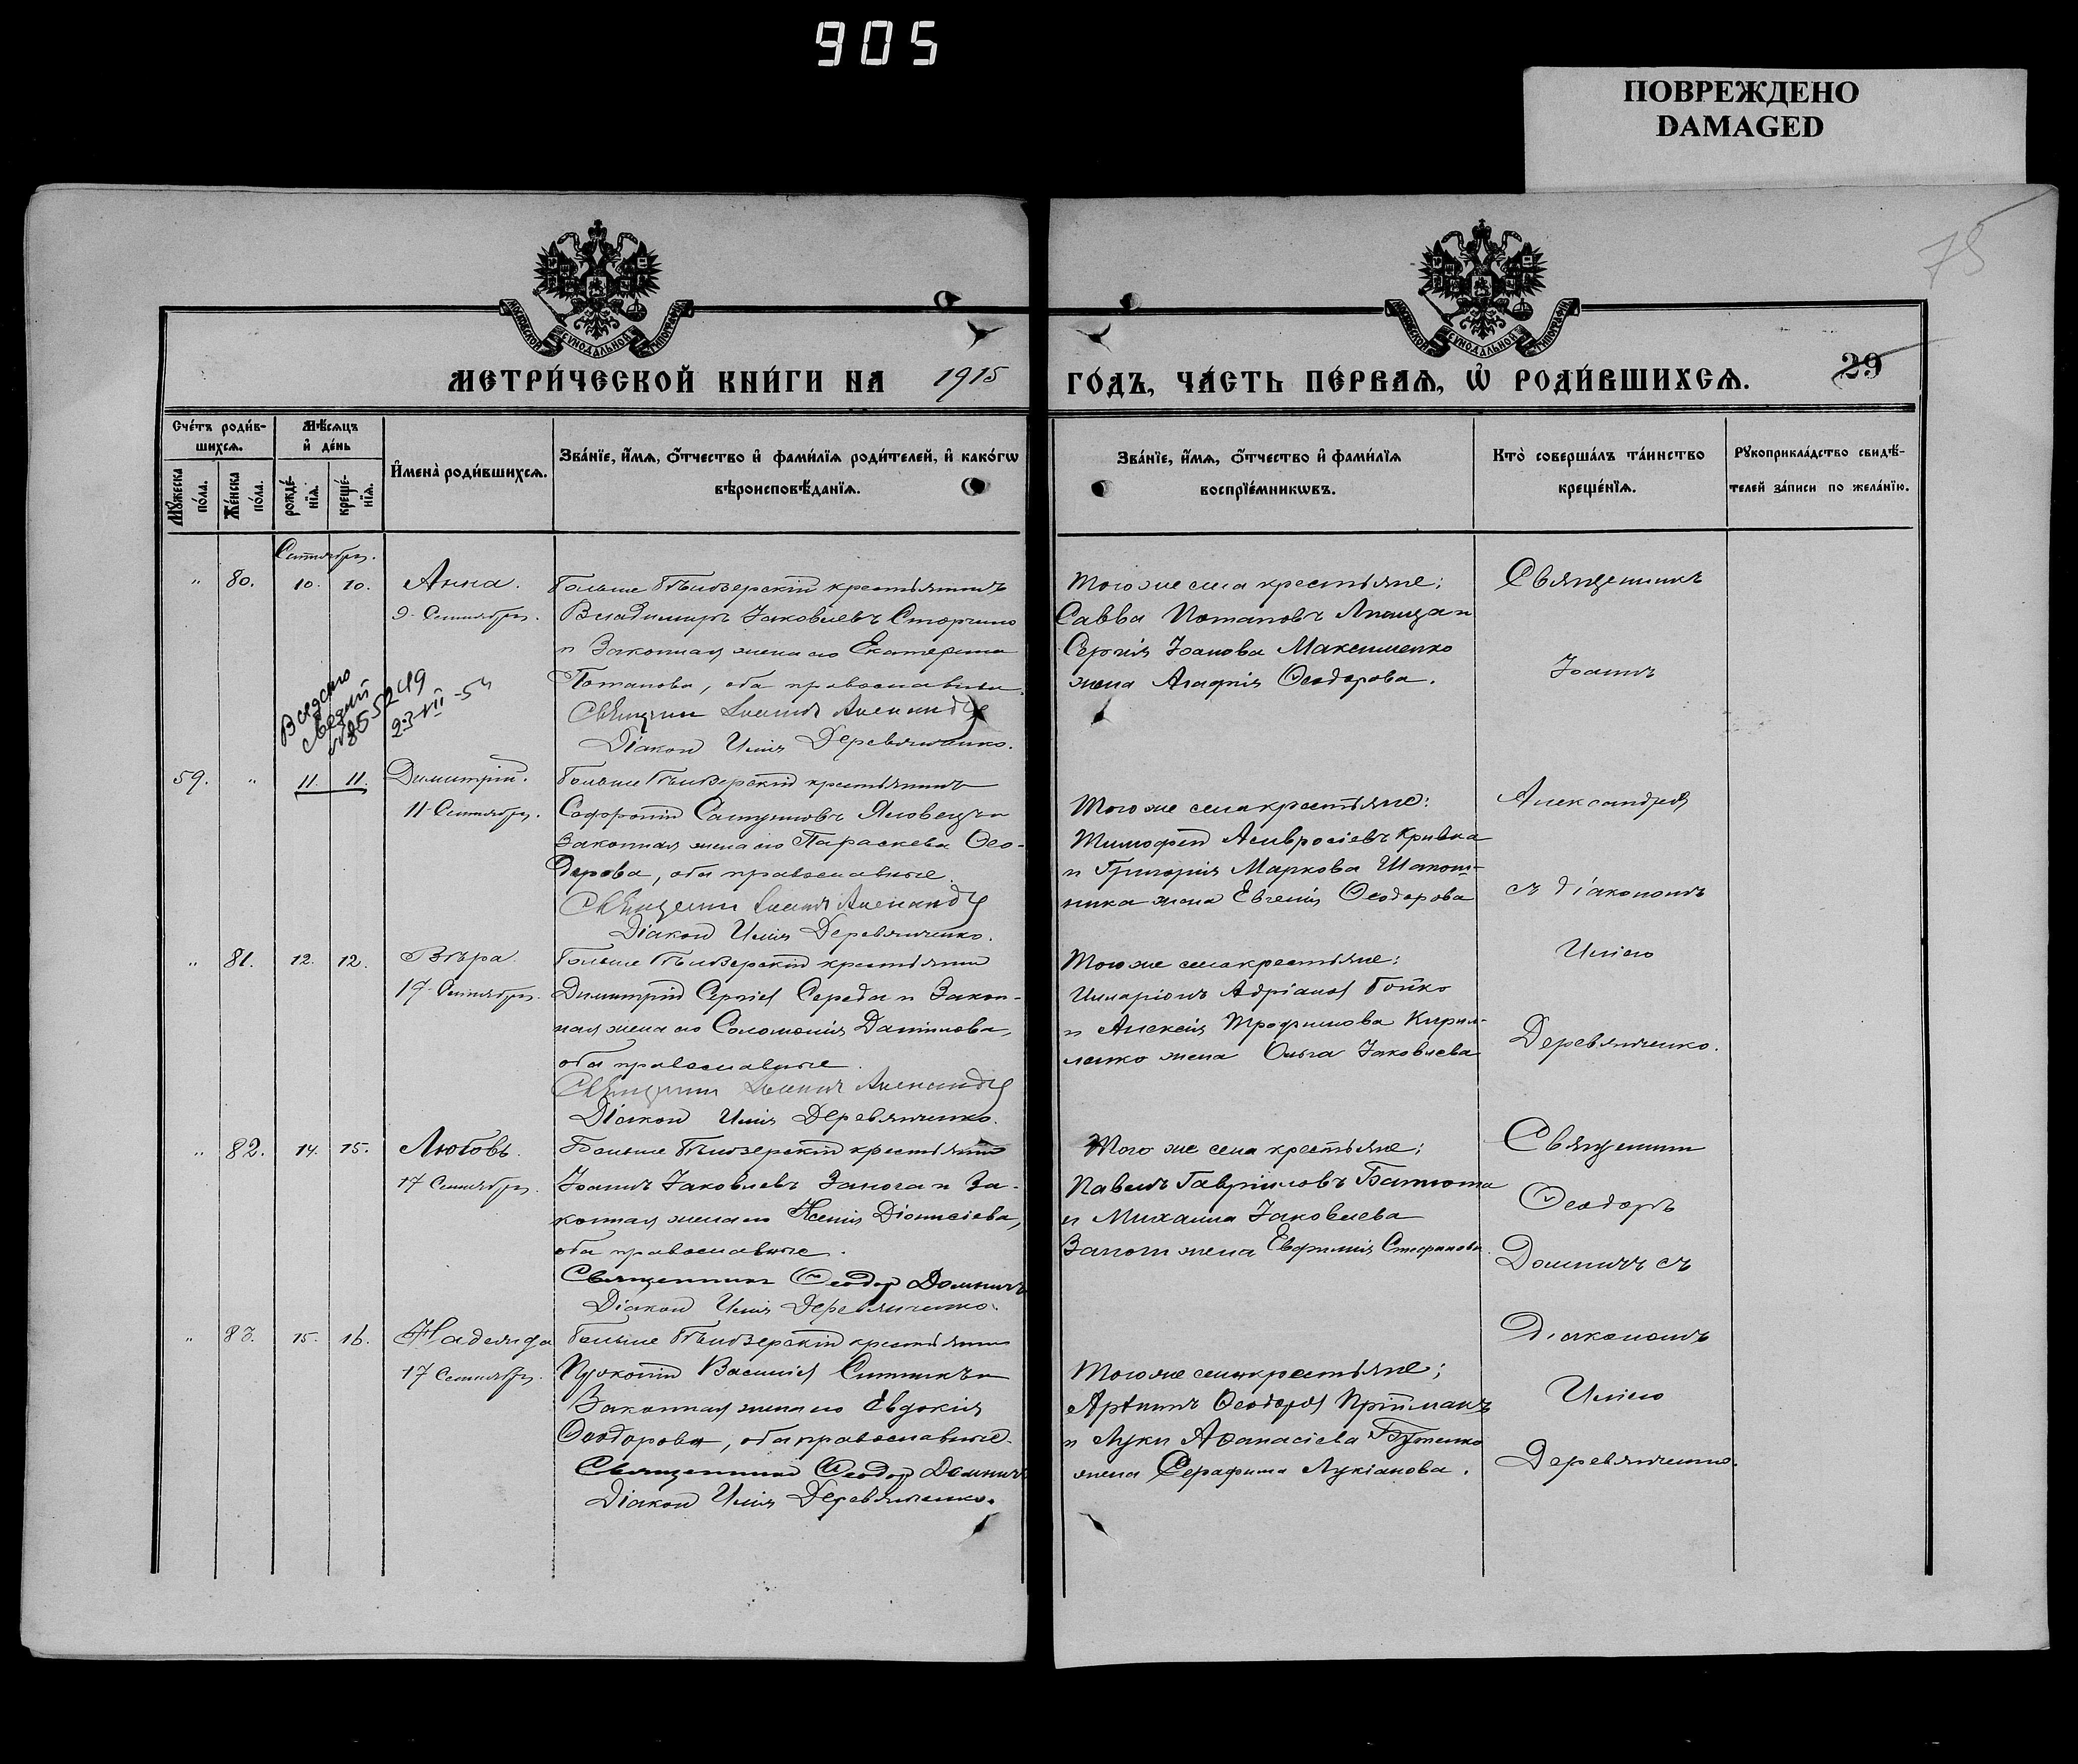 905
ПОВРЕЖДЕНО
DAMAGED
75
МОСКОВСКОЙ СѴНОДАЛЬНОЙ ТИПОГРАФІИ
МОСКОВСКОЙ СѴНОДАЛЬНОЙ ТИПОГРАФІИ
МЕТРИ́ЧЕСКОЙ КНИ́ГИ НА 1915 ГО́ДЪ, ЧА́СТЬ ПЕ́РВАѦ, Ѡ҆ РОДИ́ВШИХСѦ. 29
Сче́тъ роди́в-
шихсѧ.
Мѣ́сѧцъ
и҆ де́нь
Мꙋ́жеска
по́ла.
Же́нска
по́ла.
рожде́-
нїѧ.
креще́-
нїѧ.
И҆мена̀ роди́вшихсѧ.
Зва́нїе, и҆́мѧ, ѻ҆́тчество и҆ фами́лїѧ роди́телей, и҆ како́гѡ
вѣроисповѣ́данїѧ.
Зва́нїе, и҆́мѧ, ѻ҆́тчество и҆ фами́лїѧ
воспрїе́мникѡвъ.
Кто̀ соверша́лъ та́инство
креще́нїѧ.
Рꙋкоприкла́дство свидѣ́-
телей за́писи по жела́нїю.
Сентября.
" 80. 10. 10. Анна.
9 Сентября.
Больше Бѣлозерскій крестьянинъ
Владимиръ Іаковлевъ Сторчило
и законная жена его Екатерина
Потапова, оба православные
Священник Іоанн Александров
Діакон Илія Деревянченко.
Того же села крестьяне:
Савва Потаповъ и
Сергія Іоанова Максименко
жена Агафія Ѳеодорова.
Священникъ
Іоаннъ
23-VII-54
59. " 11. 11. Димитрій.
11 Сентября.
Больше Бѣлозерскій крестьянинъ
Софроній Яловецъ и
законная жена его Параскева Ѳео-
дорова, оба православные
Священник Іоанн Александров
Діакон Илія Деревянченко.
Того же села крестьяне:
Тимофей Амвросіевъ Кривка
и Григорія Маркова Шапош-
ника жена Евгенія Ѳеодорова
Александров
съ діакономъ
" 81. 12. 12. Вѣра.
Сентября.
Больше Бѣлозерскій крестьянин
Димитрій Сергіев Середа и закон-
ная жена его Соломонія Даніилова,
оба православные.
Священник Іоанн Александров
Діакон Илія Деревянченко.
Того же села крестьяне:
Илларіонъ Адріанов Бойко
и Алексія Трофимова Кирил-
ленко жена Ольга Іаковлева
Иліею
Деревянченко.
" 82. 14. 15. Любовь.
17 Сентября.
Больше Бѣлозерскій крестьянин
Іоаннъ Іаковлевъ Запога и за-
конная жена его Ксенія Діонисіева,
оба православные.
Священник Ѳеодор Домнич
Діакон Илія Деревянченко.
Того же села крестьяне:
Павелъ Гавріиловъ
и Михаила Іаковлева
Запоги жена Евфимія Стефанова.
Священник
Ѳеодоръ
Домничъ съ
" 83. 15. 16. Надежда
17 Сентября.
Больше Бѣлозерскій крестьянин
Прокопій Василіев Ситникъ и
законная жена его Евдокія
Ѳеодорова, оба православные.
Священник Ѳеодор Домнич
Діакон Илія Деревянченко.
Того же села крестьяне:
Ѳеодоров Прійманъ
и Луки Аѳанасіева Бутенко
жена Серафима Лукіанова.
Діакономъ
Иліею
Деревянченко.